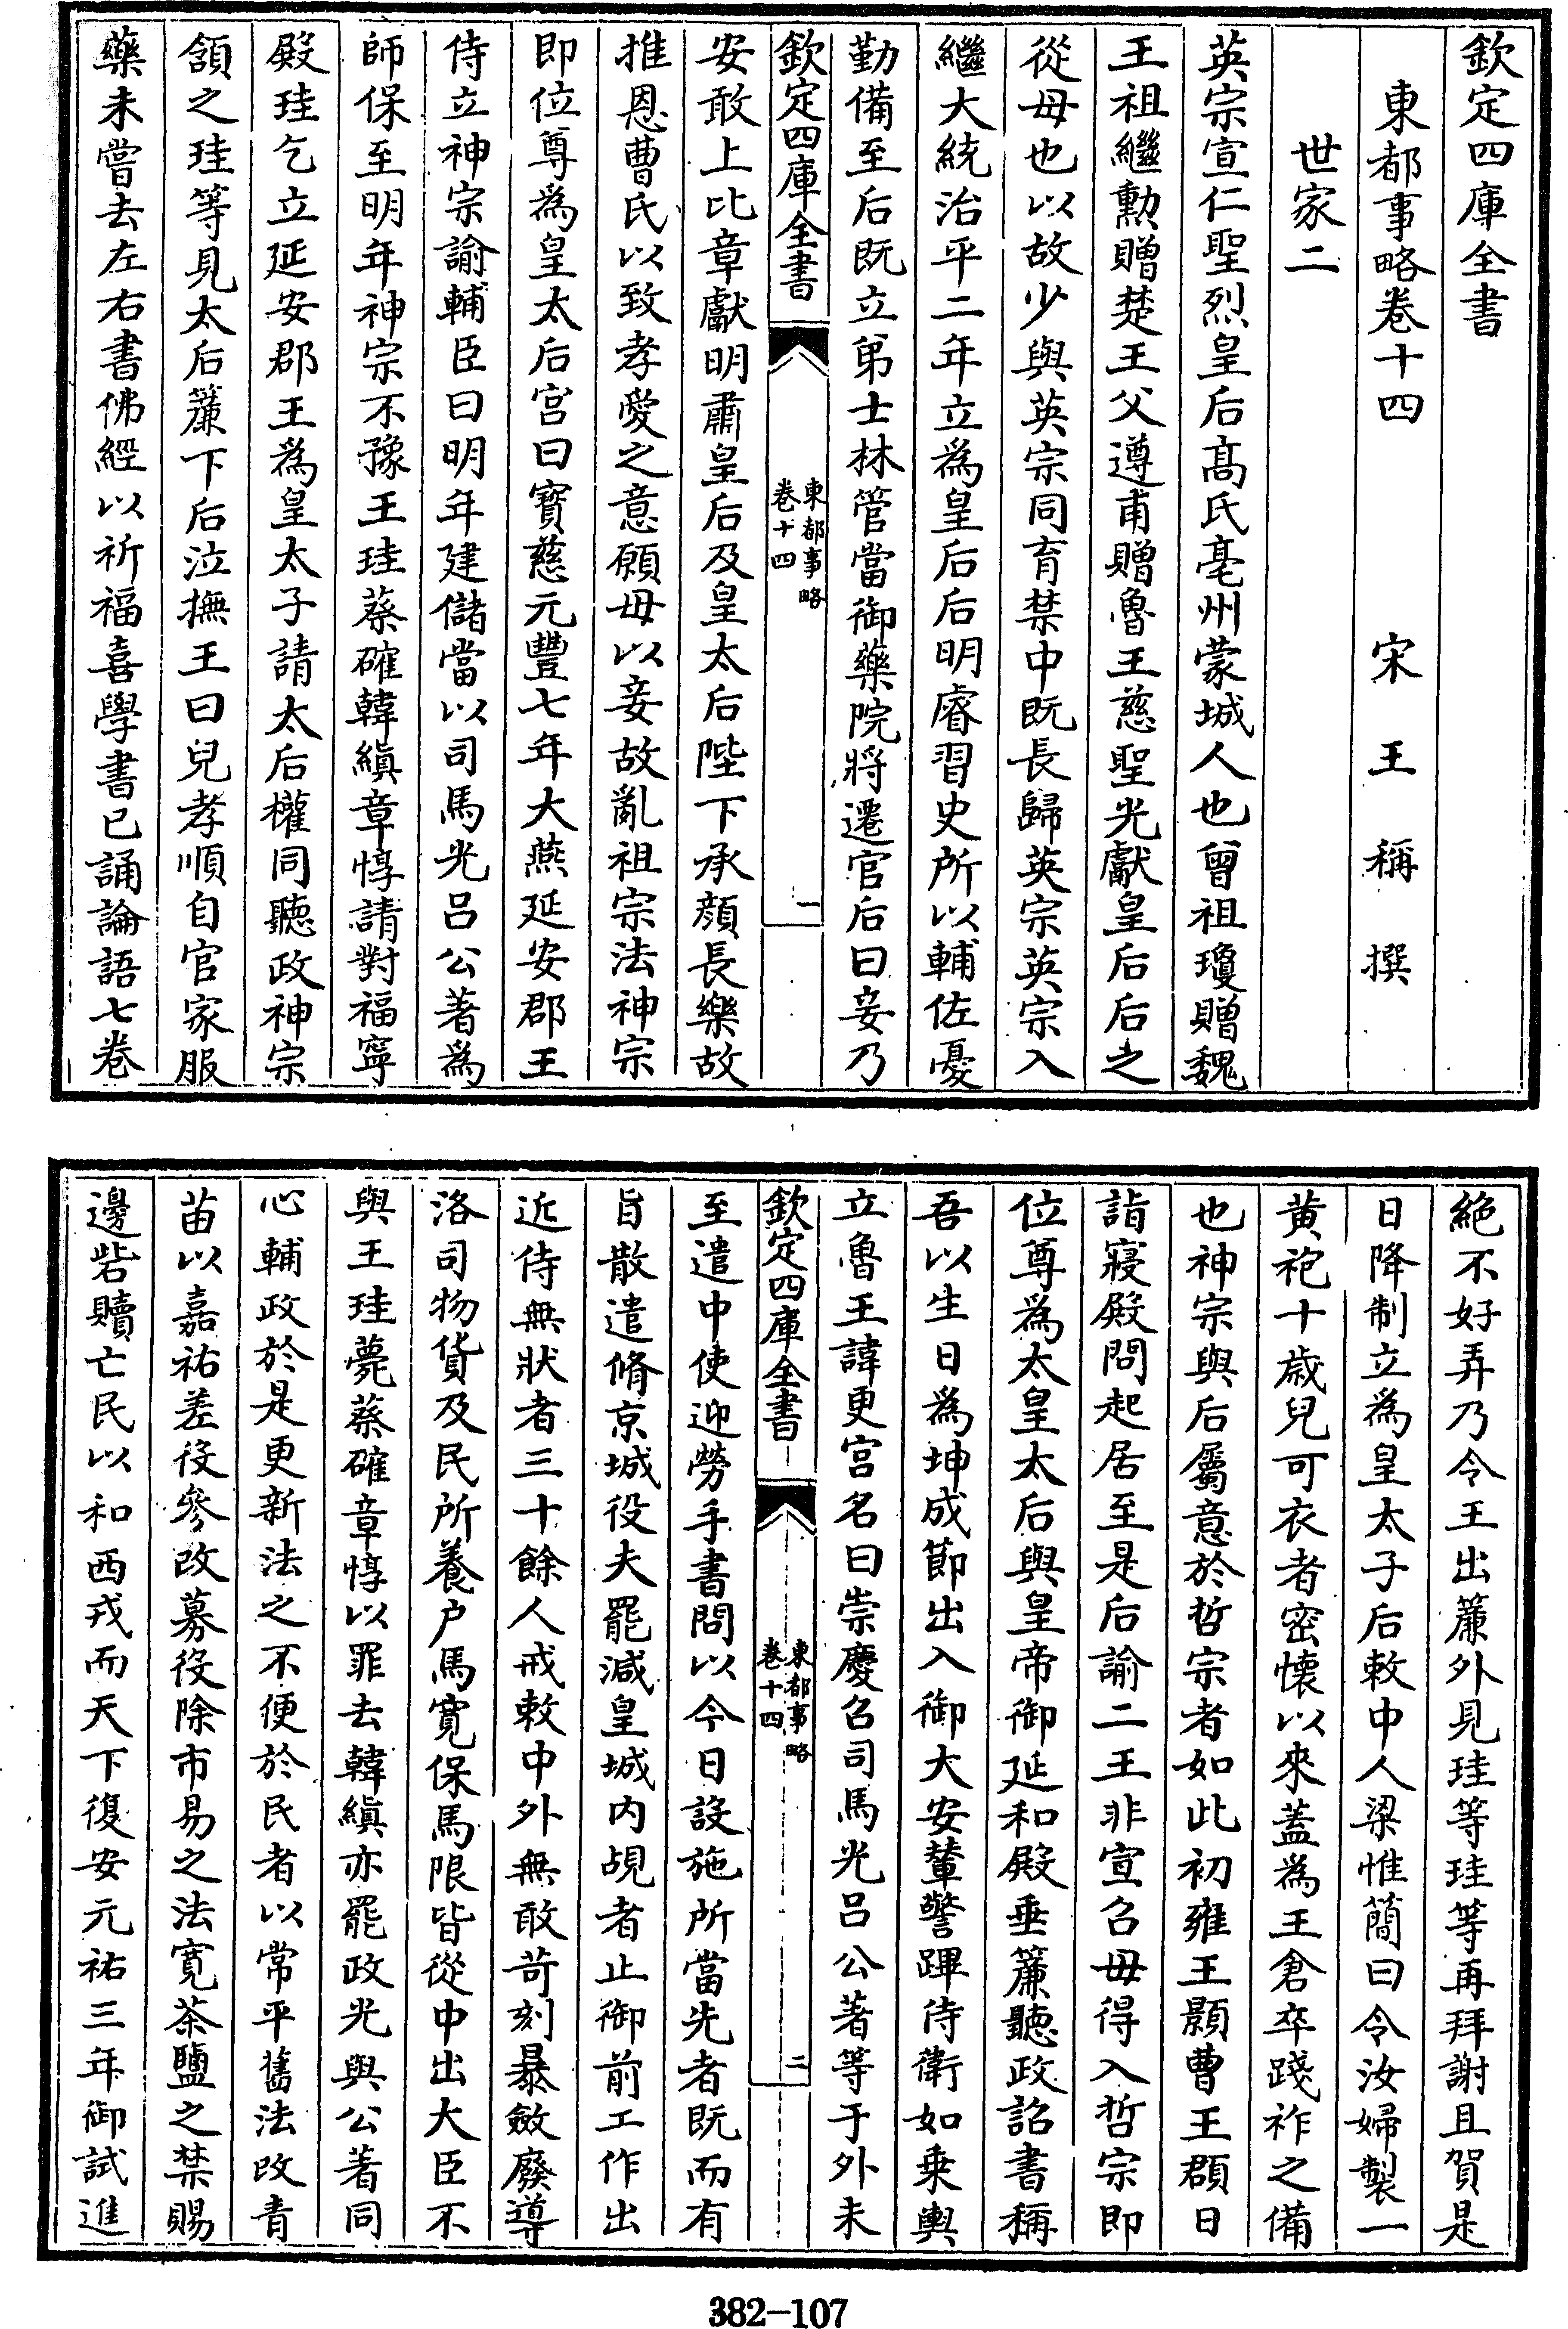 欽定四庫全書
東都事略卷十四
宋王稱撰
世家二
英宗宣仁聖烈皇后髙氏亳州蒙城人也曾祖瓊贈魏
王祖繼勲贈楚王父遵甫贈魯王慈聖光獻皇后后之
從母也以故少與英宗同育禁中既長歸英宗英宗入
繼大統治平二年立為皇后后明睿習史所以輔佐憂
勤備至后既立弟士林管當御藥院將遷官后曰妾乃
欽定四庫全書
東都事略
卷十四
一
安敢上比章獻明肅皇后及皇太后陛下承顔長樂故
推恩曹氏以致孝愛之意願毋以妾故亂祖宗法神宗
即位尊為皇太后宫曰寳慈元豐七年大燕延安郡王
侍立神宗諭輔臣曰明年建儲當以司馬光吕公著為
師保至明年神宗不豫王珪蔡確韓縝章惇請對福寧
殿珪乞立延安郡王為皇太子請太后權同聽政神宗
頷之珪等見太后簾下后泣撫王曰兒孝順自官家服
藥未嘗去左右書佛經以祈福喜學書已誦論語七卷
絶不好弄乃令王出簾外見珪等珪等再拜謝且賀是
日降制立為皇太子后敕中人梁惟簡曰令汝婦製一
黄袍十歳兒可衣者密懐以來蓋為王倉卒踐祚之備
也神宗與后屬意於哲宗者如此初雍王顥曹王頵日
詣寢殿問起居至是后諭二王非宣召毋得入哲宗即
位尊為太皇太后與皇帝御延和殿垂簾聽政詔書稱
吾以生日為坤成節出入御大安輦警蹕侍衛如乗輿
立魯王諱更宫名曰崇慶召司馬光吕公著等于外未
欽定四庫全書
東都事略
卷十四
二
至遣中使迎勞手書問以今日設施所當先者既而有
旨散遣脩京城役夫罷減皇城内覘者止御前工作出
近侍無狀者三十餘人戒敕中外無敢苛刻暴斂廢導
洛司物貨及民所養户馬寛保馬限皆從中出大臣不
與王珪薨蔡確章惇以罪去韓縝亦罷政光與公著同
心輔政於是更新法之不便於民者以常平舊法改青
苗以嘉祐差役參改募役除市易之法寛茶鹽之禁賜
邊砦贖亡民以和西戎而天下復安元祐三年御試進
382-107